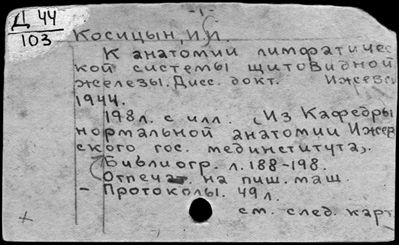 -1-
Д 44
103
Косицын, И.И.
К анатомии лимфатичес
кой системы щитовидной
железы. Дисс. докт. Ижевск
1944.
198 л. с илл. (Из Кафедры
нормальной анатомии Ижев
ского гос. мединститута).
Библиогр. л. 188-198.
Отпечат. на пиш. маш.
- Протоколы. 49 л.
см. след. карт